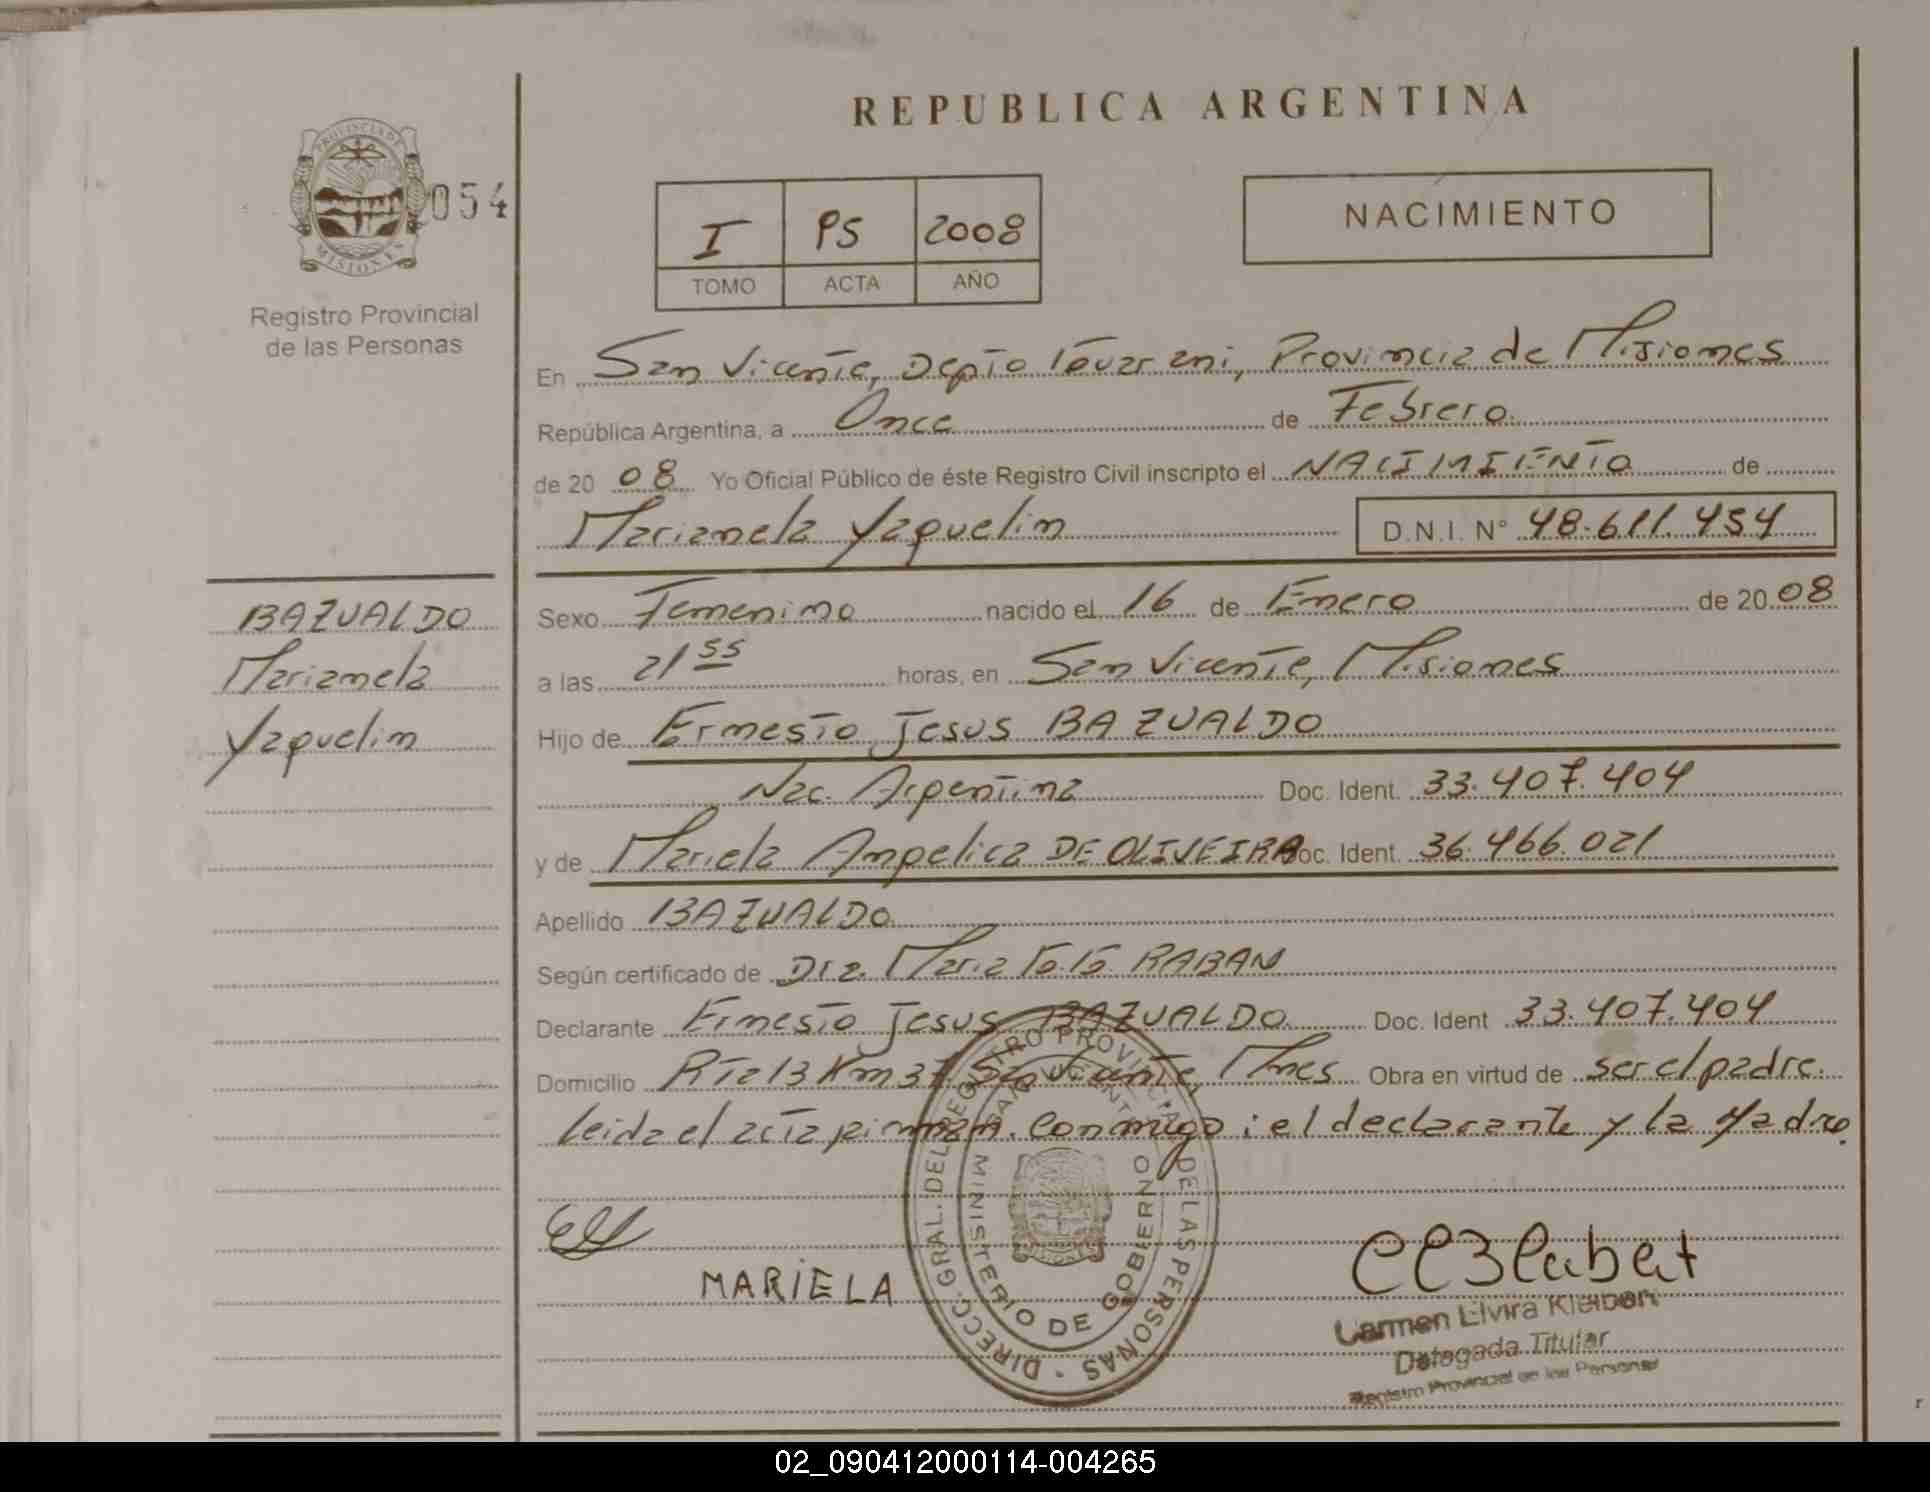 REPUBLICA ARGENTINA
PROVINCIA DE MISIONES
054
Registro Provincial
de las Personas
I PS 2008
TOMO ACTA AÑO
NACIMIENTO
En San Vicente, Depto Guarani, Provincia de Misiones
República Argentina, a Once de Febrero
de 20 08 Yo Oficial Público de éste Registro Civil inscripto el NACIMIENTO de
Marianela Yaquelin D.N.I. N° 48.611.454
BAZUALDO
Marianela
Yaquelin
Sexo Femenino nacido el 16 de Enero de 20 08
a las 21 55 horas, en San Vicente, Misiones
Hijo de Ernesto Jesus BAZUALDO
Nac. Argentina Doc. Ident. 33.407.404
y de Mariela Angelica DE OLIVEIRA Doc. Ident. 36.466.021
Apellido BAZUALDO
Según certificado de Dra. Maria RABAN
Declarante Ernesto Jesus BAZUALDO Doc. Ident 33.407.404
Domicilio Rta 13 Km 37 San Vicente, Mnes Obra en virtud de ser el padre.
leida el acta firman conmigo: el declarante y la Madre.
MARIELA
DIRECC. GRAL. DEL REGISTRO PROVINCIAL DE LAS PERSONAS
MINISTERIO DE GOBIERNO
Carmen Elvira
Delegada Titular
Registro Provincial de las Personas
02_090412000114-004265